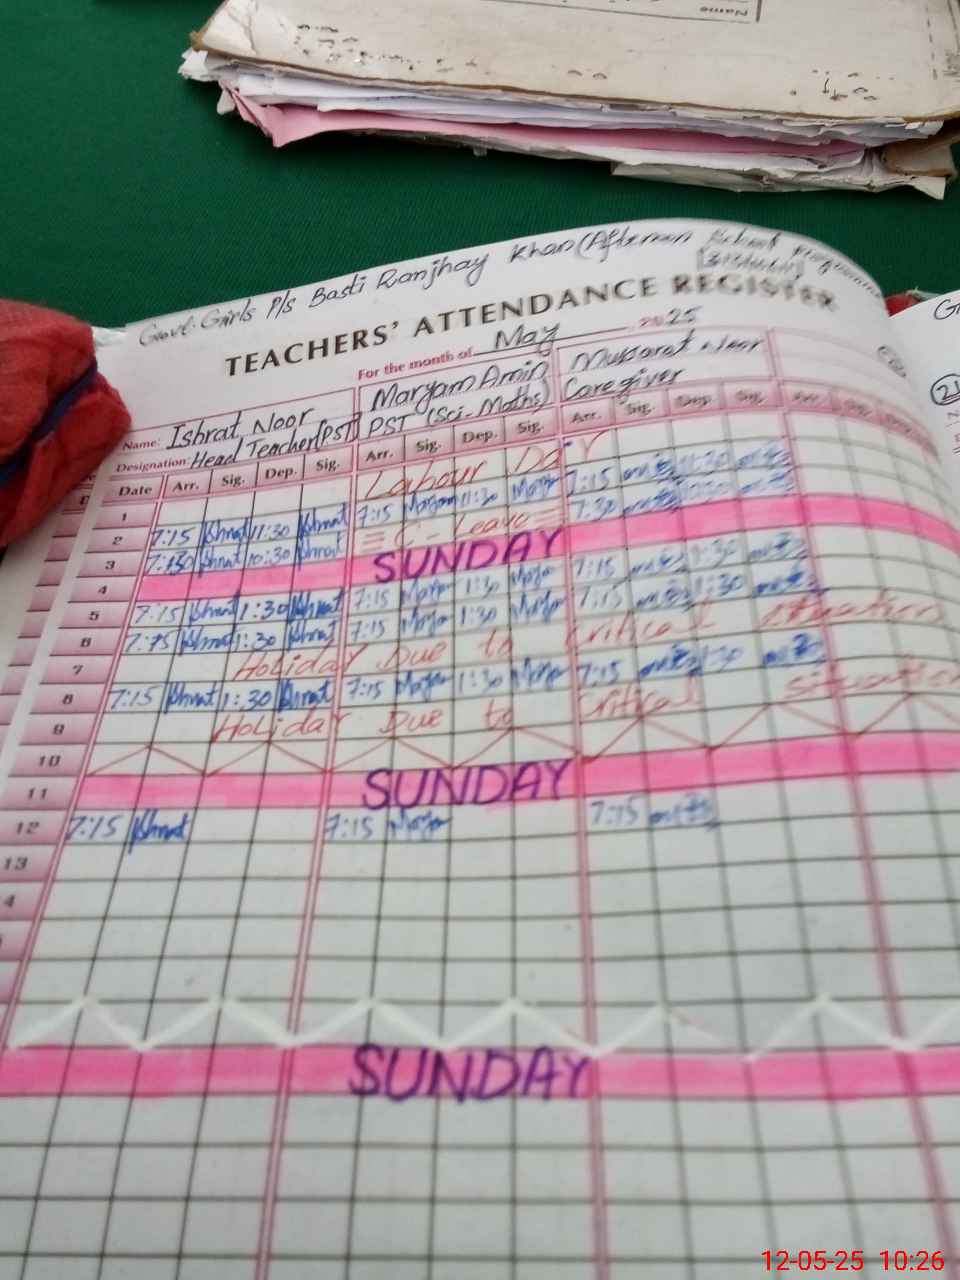 Name
Govt. Girls P/s Basti Ranjhay Khan (Afternoon School Programme)
TEACHERS' ATTENDANCE REGISTER
For the month of May 2025
Name: Ishrat Noor Maryam Amin Mussarat Noor
Designation: Head Teacher (PST) PST (Sci-Maths) Caregiver
Date Arr. Sig. Dep. Sig. Arr. Sig. Dep. Sig. Arr. Sig. Dep. Sig.
1 Labour Day
2 7:15 Ishrat 11:30 Ishrat 7:15 Maryam 11:30 Maryam 7:15 11:30
3 7:30 Ishrat 10:30 Ishrat = C-Leave = 7:30 10:30
4 SUNDAY
5 7:15 Ishrat 1:30 Ishrat 7:15 Maryam 1:30 Maryam 7:15 1:30
6 7:15 Ishrat 1:30 Ishrat 7:15 Maryam 1:30 Maryam 7:15 1:30
7 Holiday Due to Critical situation
8 7:15 Ishrat 1:30 Ishrat 7:15 Maryam 1:30 Maryam 7:15 1:30
9 Holiday Due to Critical situation
10
11 SUNDAY
12 7:15 Ishrat 7:15 Maryam 7:15
13
4
SUNDAY
21
12-05-25 10:26